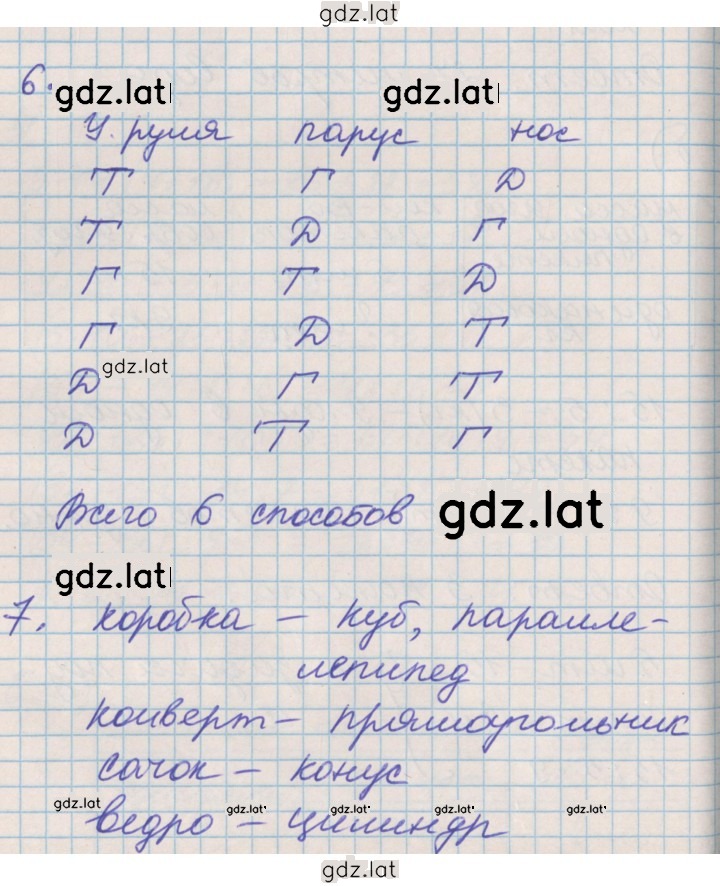 gdz.lat
6.
gdz.lat gdz.lat
У руля парус нос
Т Г Д
Т Д Г
Г Т Д
Г Д Т
gdz.lat
Д Г Т
Д Т Г
Всего 6 способов gdz.lat
gdz.lat
7. коробка – куб, паралле-
лепипед
конверт – прямоугольник
сачок – конус
gdz.lat gdz.lat gdz.lat gdz.lat gdz.lat
ведро – цилиндр
gdz.lat